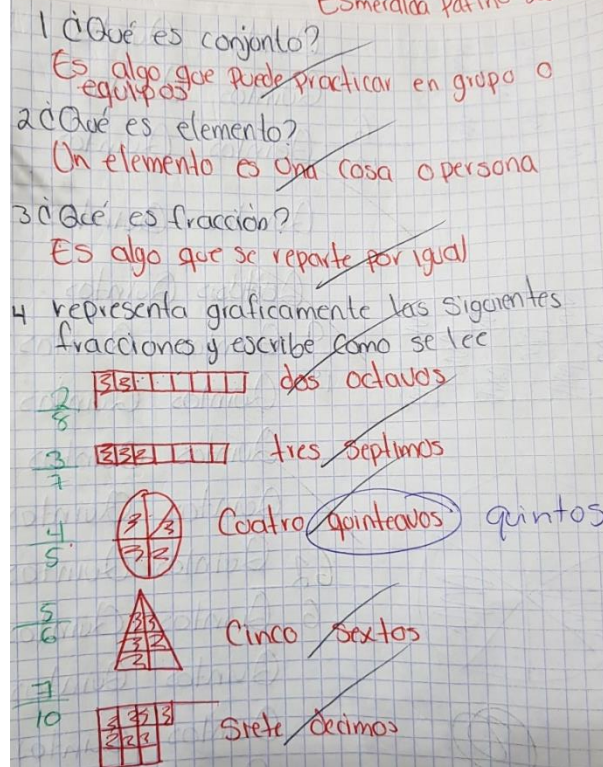 Esmeralda Patiñ
1 ¿Qué es conjunto?
Es algo que puede practicar en grupo o
equipos
2 ¿Qué es elemento?
Un elemento es una cosa o persona
3 ¿Qué es fracción?
Es algo que se reparte por igual
4 representa graficamente las siguientes
fracciones y escribe como se lee
2/8 dos octavos
3/7 tres septimos
4/5 Cuatro quinteavos quintos
5/6 Cinco sextos
7/10 Siete decimos